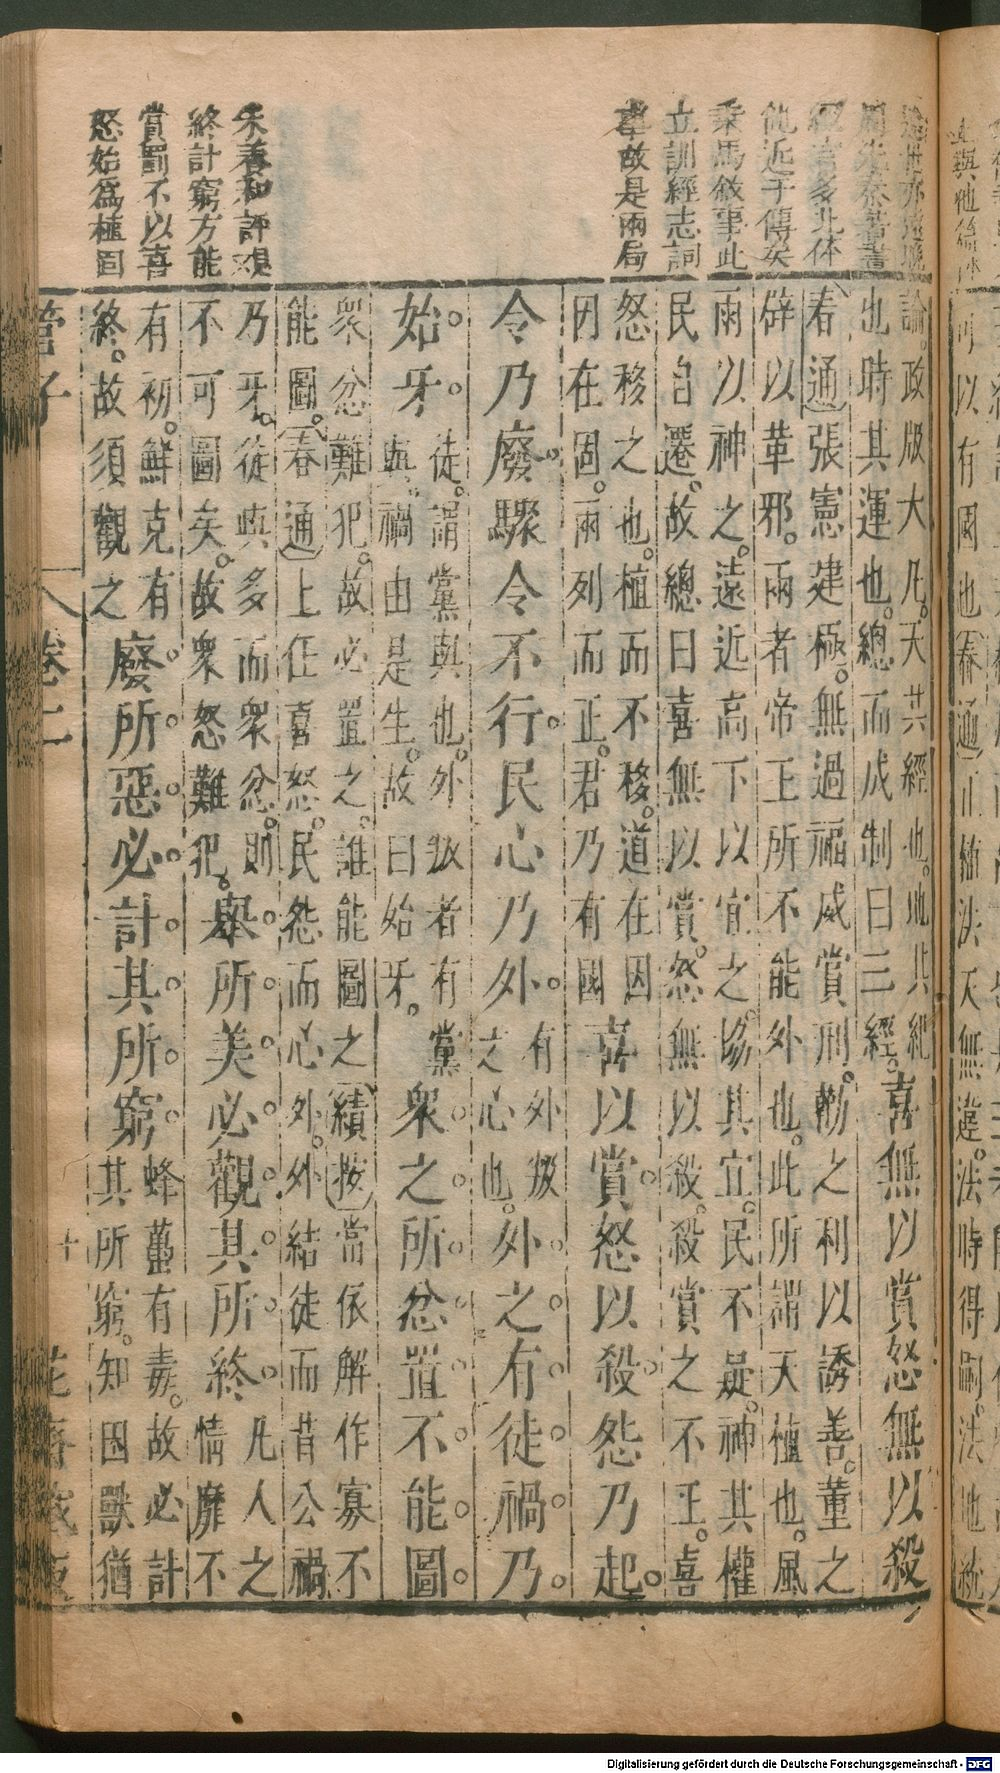 周先秦著書
經言多北体
他近于傳矣
乘馬敘事此
立訓經志詞
故是兩局
朱養和評規
終計窮方能
賞罰不以喜
怒始爲植固
可以有國也。春通
論。政版大凡。天其經也。地其紀
也時其運也。總而成制曰三經。
喜無以賞怒無以殺
春通張憲建極。無過福威賞刑。勸之利以誘善。董之
辟以革邪。兩者帝王所不能外也。此所謂天植也。風
雨以神之。遠近高下以宜之。協其宜。民不疑。神其權
民自遷。故總曰喜無以賞。怒無以殺。殺賞之不王。喜
怒移之也。植而不移。道在因
因在固。兩列而正。君乃有國
喜以賞。怒以殺。怨乃起。
令乃廢。驟令不行。民心乃外。
有外叛
之心也。
外。之。有。徒。禍。乃。
始。牙。
徒。謂黨與也。外叛者有黨
與。禍由是生。故曰始牙。
衆。之。所。忿。置。不。能。圖。
衆忿難犯。故必置之。誰能圖之績按當依解作寡不
能圖。春通上任喜怒。民怨而心外。外結徒而昔公禍
乃牙。徒與多而衆忿。則
不可圖矣。故衆怒難犯。
舉。所。美。必。觀。其。所。終。
凡人之
情靡不
有初。鮮克有
終。故須觀之
廢。所。惡。必。計。其。所。窮。
蜂蠆有毒。故必計
其所窮。知困獸猶
管子
卷二
十
花齋藏板
Digitalisierung gefördert durch die Deutsche Forschungsgemeinschaft - DFG